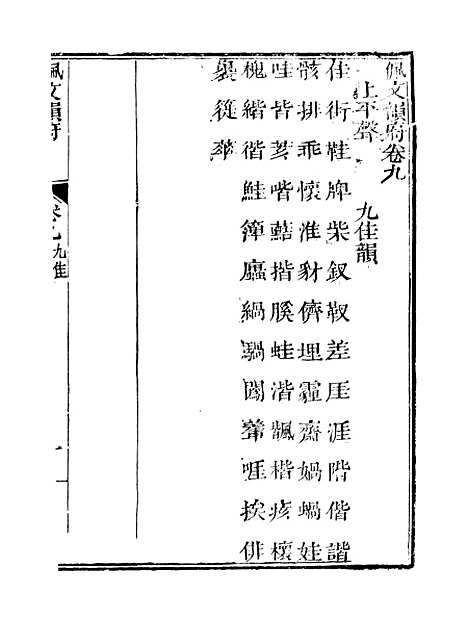 佩文韻府卷九
上平聲 九佳韻
佳街鞋牌柴釵靫差厓涯階偕諧
骸排乖懷淮豺儕埋霾齋媧蝸娃
哇皆荄喈揩膎蛙湝楷痎櫰
槐鮭簰緺騧啀挨俳
佩文韻府
卷九 九佳
一